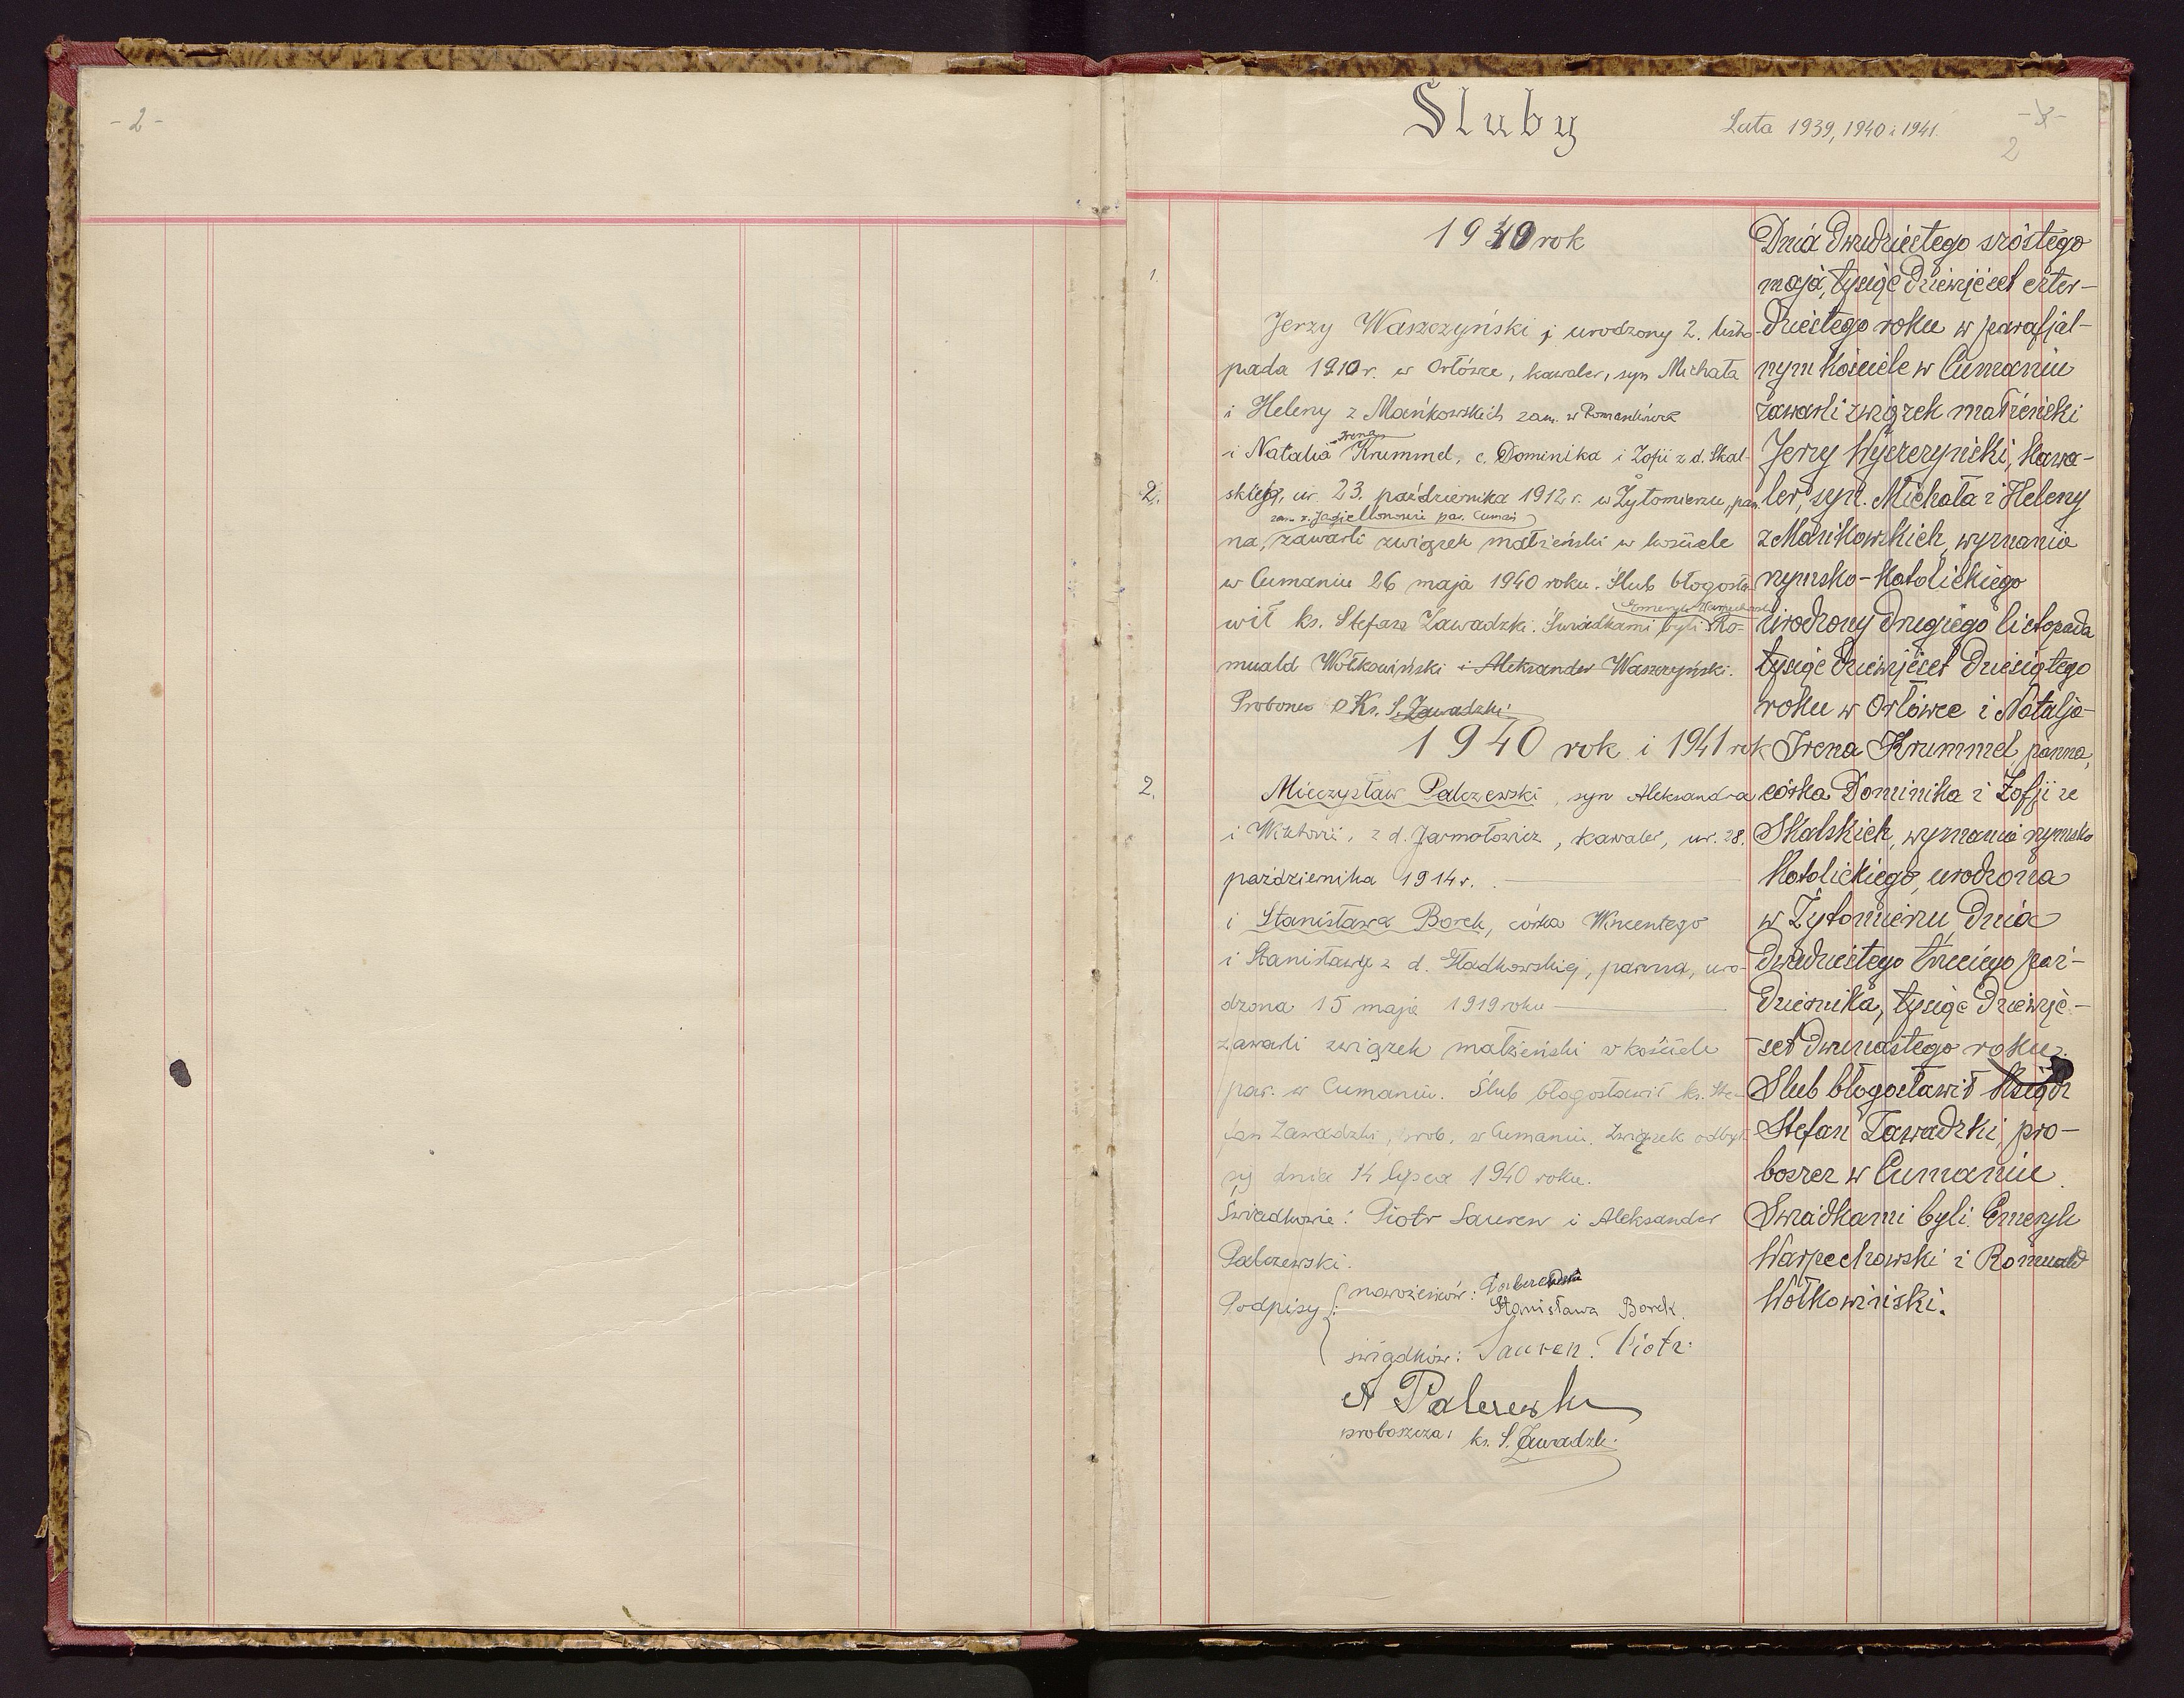 - 2 -
Śluby
Lata 1939, 1940 i 1941.
2
1940 rok
1.
Jerzy Waszczyński, urodzony 2. listo-
pada 1910 r. w Orłówce, kawaler, syn Michała
i Heleny z Mańkowskich zam. w
Irena
i Natalia Krummel, c. Dominika i Zofii z d. Skal-
2.
skiej, ur. 23. października 1912 r. w Żytomierzu, pan-
zam. w Jagiellonowie par. Cumań
na, zawarli związek małżeński w kościele
w Cumaniu 26 maja 1940 roku. Ślub błogosła-
Emeryk Warpechowski
wił ks. Stefan Zawadzki. Świadkami byli Ro-
muald Wołkowiński i Aleksander Waszczyński.
Ks. S. Zawadzki
1940 rok i 1941 rok
2.
Mieczysław Palczewski, syn Aleksandra
i Wiktorii, z d. Jarmołowicz, kawaler, ur. 28.
października 1914 r.
i Stanisława Borek, córka Wincentego
i Stanisławy z d. Gładkowskiej, panna, uro-
dzona 15 maja 1919 roku
zawarli związek małżeński w kościele
par. w Cumaniu. Ślub błogosławił ks. Ste-
fan Zawadzki, prob. w Cumaniu. Związek odbył
się dnia 14 lipca 1940 roku.
Świadkowie: Piotr Sauren i Aleksander
Palczewski.
Podpisy: nowożeńców: Palczewski
Stanisława Borek.
świadków: Sauren Piotr
A Palczewski
proboszcza: ks. S. Zawadzki.
Dnia dwudziestego szóstego
maja, tysiąc dziewięćset czter-
dziestego roku w parafjal-
nym kościele w Cumaniu
zawarli związek małżeński
Jerzy Wyszczyński, kawa-
ler, syn Michała i Heleny
z Mańkowskich, wyznania
rzymsko-katolickiego
urodzony drugiego listopada
tysiąc dziewięćset dziesiątego
roku w Orłówce i Natalja-
Irena Krummel, panna,
córka Dominika i Zofji ze
Skalskich, wyznania rzymsko
katolickiego, urodzona
w Żytomierzu, dnia
dwudziestego trzeciego paź-
dziernika, tysiąc dziewię-
set dwunastego roku.
Ślub błogosławił ksiądz
Stefan Zawadzki, pro-
boszcz w Cumaniu.
Swiadkami byli: Emeryk
Warpechowski i Romuald
Wołkowiński.